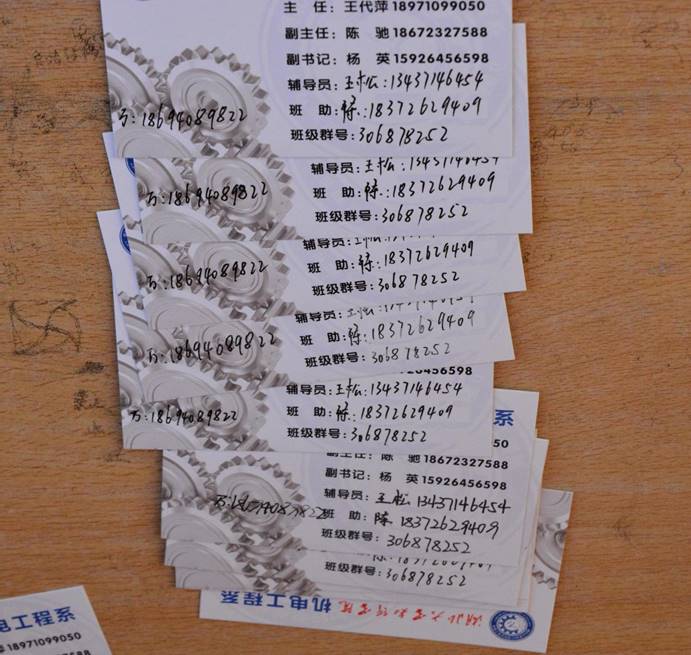 主 任：王代萍 18971099050
副主任：陈 驰 18672327588
副书记：杨 英 15926456598
辅导员：王松：13437146454
万：18694089822
班 助：陈：18372629409
班级群号：306878252
辅导员：王松：13437146454
万：18694089822
班 助：陈：18372629409
班级群号：306878252
辅导员：
万：18694089822
班 助：陈：18372629409
班级群号：306878252
辅导员：
万：18694089822
班 助：陈：18372629409
班级群号：306878252
辅导员：王松：13437146454
万：18694089822
班 助：陈：18372629409
班级群号：306878252
系
50
副主任：陈 驰 18672327588
副书记：杨 英 15926456598
辅导员：王松 13437146454
班 助：陈 18372629409
班级群号：306878252
班级群号：306878252
机电工程系
电工程系
18971099050
7588